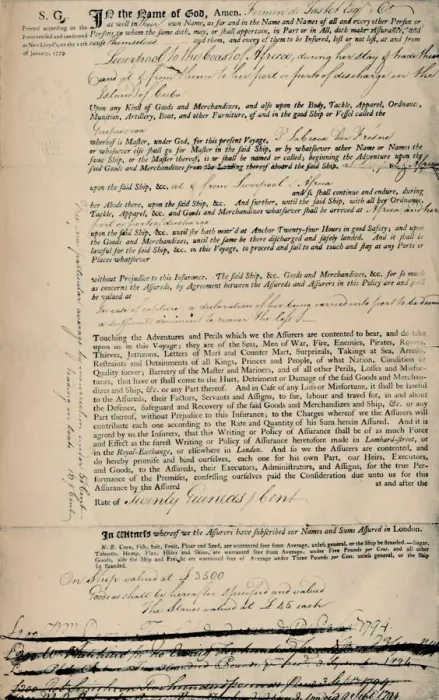 S. G.
Printed according to the
Form revised and confirmed
at New Lloyd's, the 12th
of January, 1779.
In the Name of God, Amen. Fermin de Tastet Esqr & Co
as well in their own Name, as for and in the Name and Names of all and every other Person or
Persons to whom the same doth, may, or shall appertain, in Part or in All, doth make Assurance, and
cause themselves and them, and every of them to be Insured, lost or not lost, at and from
Liverpool to the Coast of Africa, during her stay & trade there
and at & from thence to her port or ports of discharge in the
Island of Cuba
Upon any Kind of Goods and Merchandizes, and also upon the Body, Tackle, Apparel, Ordnance,
Munition, Artillery, Boat, and other Furniture, of and in the good Ship or Vessel called the
Guipuzcoa
whereof is Master, under God, for this present Voyage,
or whosoever else shall go for Master in the said Ship, or by whatsoever other Name or Names the
same Ship, or the Master thereof, is or shall be named or called; beginning the Adventure upon the
said Goods and Merchandizes from the Loading thereof aboard the said Ship, Africa
upon the said Ship, &c. at & from Liverpool Africa
and so shall continue and endure, during
her Abode there, upon the said Ship, &c. And further, until the said Ship, with all her Ordnance,
Tackle, Apparel, &c. and Goods and Merchandizes whatsoever shall be arrived at Africa and her
port or ports of discharge
upon the said Ship, &c. until she hath moor'd at Anchor Twenty-four Hours in good Safety; and upon
the Goods and Merchandizes, until the same be there discharged and safely landed. And it shall be
lawful for the said Ship, &c. in this Voyage, to proceed and sail to and touch and stay at any Ports or
Places whatsoever
without Prejudice to this Insurance. The said Ship, &c. Goods and Merchandizes, &c. for so much
as concerns the Assureds, by Agreement between the Assureds and Assurers in this Policy are and shall
be valued at
In case of capture, a declaration of her being carried into port to be deem'd
a sufficient to recover the loss
Touching the Adventures and Perils which we the Assurers are contented to bear, and do take
upon us in this Voyage; they are of the Seas, Men of War, Fire, Enemies, Pirates, Rovers,
Thieves, Jettizons, Letters of Mart and Counter Mart, Surprizals, Takings at Sea, Arrests,
Restraints and Detainments of all Kings, Princes and People, of what Nation, Condition or
Quality soever; Barretry of the Master and Mariners, and of all other Perils, Losses and Misfor-
tunes, that have or shall come to the Hurt, Detriment or Damage of the said Goods and Merchan-
dizes and Ship, &c. or any Part thereof. And in Case of any Loss or Misfortune, it shall be lawful
to the Assureds, their Factors, Servants and Assigns, to sue, labour and travel for, in and about
the Defence, Safeguard and Recovery of the said Goods and Merchandizes and Ship, &c. or any
Part thereof, without Prejudice to this Insurance; to the Charges whereof we the Assurers will
contribute each one according to the Rate and Quantity of his Sum herein Assured. And it is
agreed by us the Insurers, that this Writing or Policy of Assurance shall be of as much Force
and Effect as the surest Writing or Policy of Assurance heretofore made in Lombard-street, or
in the Royal-Exchange, or elsewhere in London. And so we the Assurers are contented, and
do hereby promise and bind ourselves, each one for his own Part, our Heirs, Executors,
and Goods, to the Assureds, their Executors, Administrators, and Assigns, for the true Per-
formance of the Premises, confessing ourselves paid the Consideration due unto us for this
Assurance by the Assured at and after the
Rate of Twenty Guineas p Cent
Free from particular average by insurrection under 5 p Cent
In Witness whereof we the Assurers have subscribed our Names and Sums Assured in London.
N. B. Corn, Fish, Salt, Fruit, Flour and Seed, are warranted free from Average, unless general, or the Ship be stranded.—Sugar,
Tobacco, Hemp, Flax, Hides and Skins, are warranted free from Average, under Five Pounds per Cent. and all other
Goods, also the Ship and Freight, are warranted free of Average under Three Pounds per Cent. unless general, or the Ship
be stranded.
On Ship valued at £3500
Goods as shall be hereafter specified and valued
The Slaves valued at £45 each
1794
1794